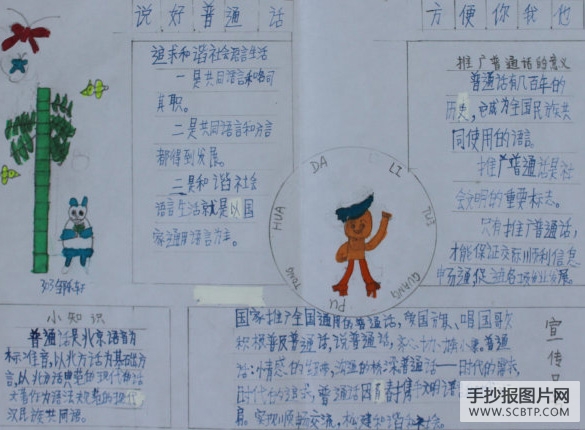 说好普通话
方便你我也
追求和谐社会语言生活
一是共同语言和各司
其职。
二是共同语言和方言
都得到发展。
三是和谐社会
语言生活就是以国
家通用语言为主。
推广普通话的意义
普通话有几百年的
历史,它成为全国民族共
同使用的语言。
推广普通话是社
会文明的重要标志。
只有推广普通话,
才能保证交际顺利信息
畅通促进各项的发展。
DA LI TUI GUANG PU TONG HUA
小知识
普通话是北京语音为
标准音,以北方话为基础方
言,以北方话典范的现代白话
文著作为语法规范的现代
汉民族共同语。
国家推广全国通用的普通话,爱国方真、唱国歌
积极普及普通话,说普通话,
普通
话:情感的纽带,沟通的桥梁普通话——时代的需求,
时代的
普通话
文明
实现顺畅交流,构建和谐社会。
宣传
手抄报图片网
WWW.SCBTP.COM